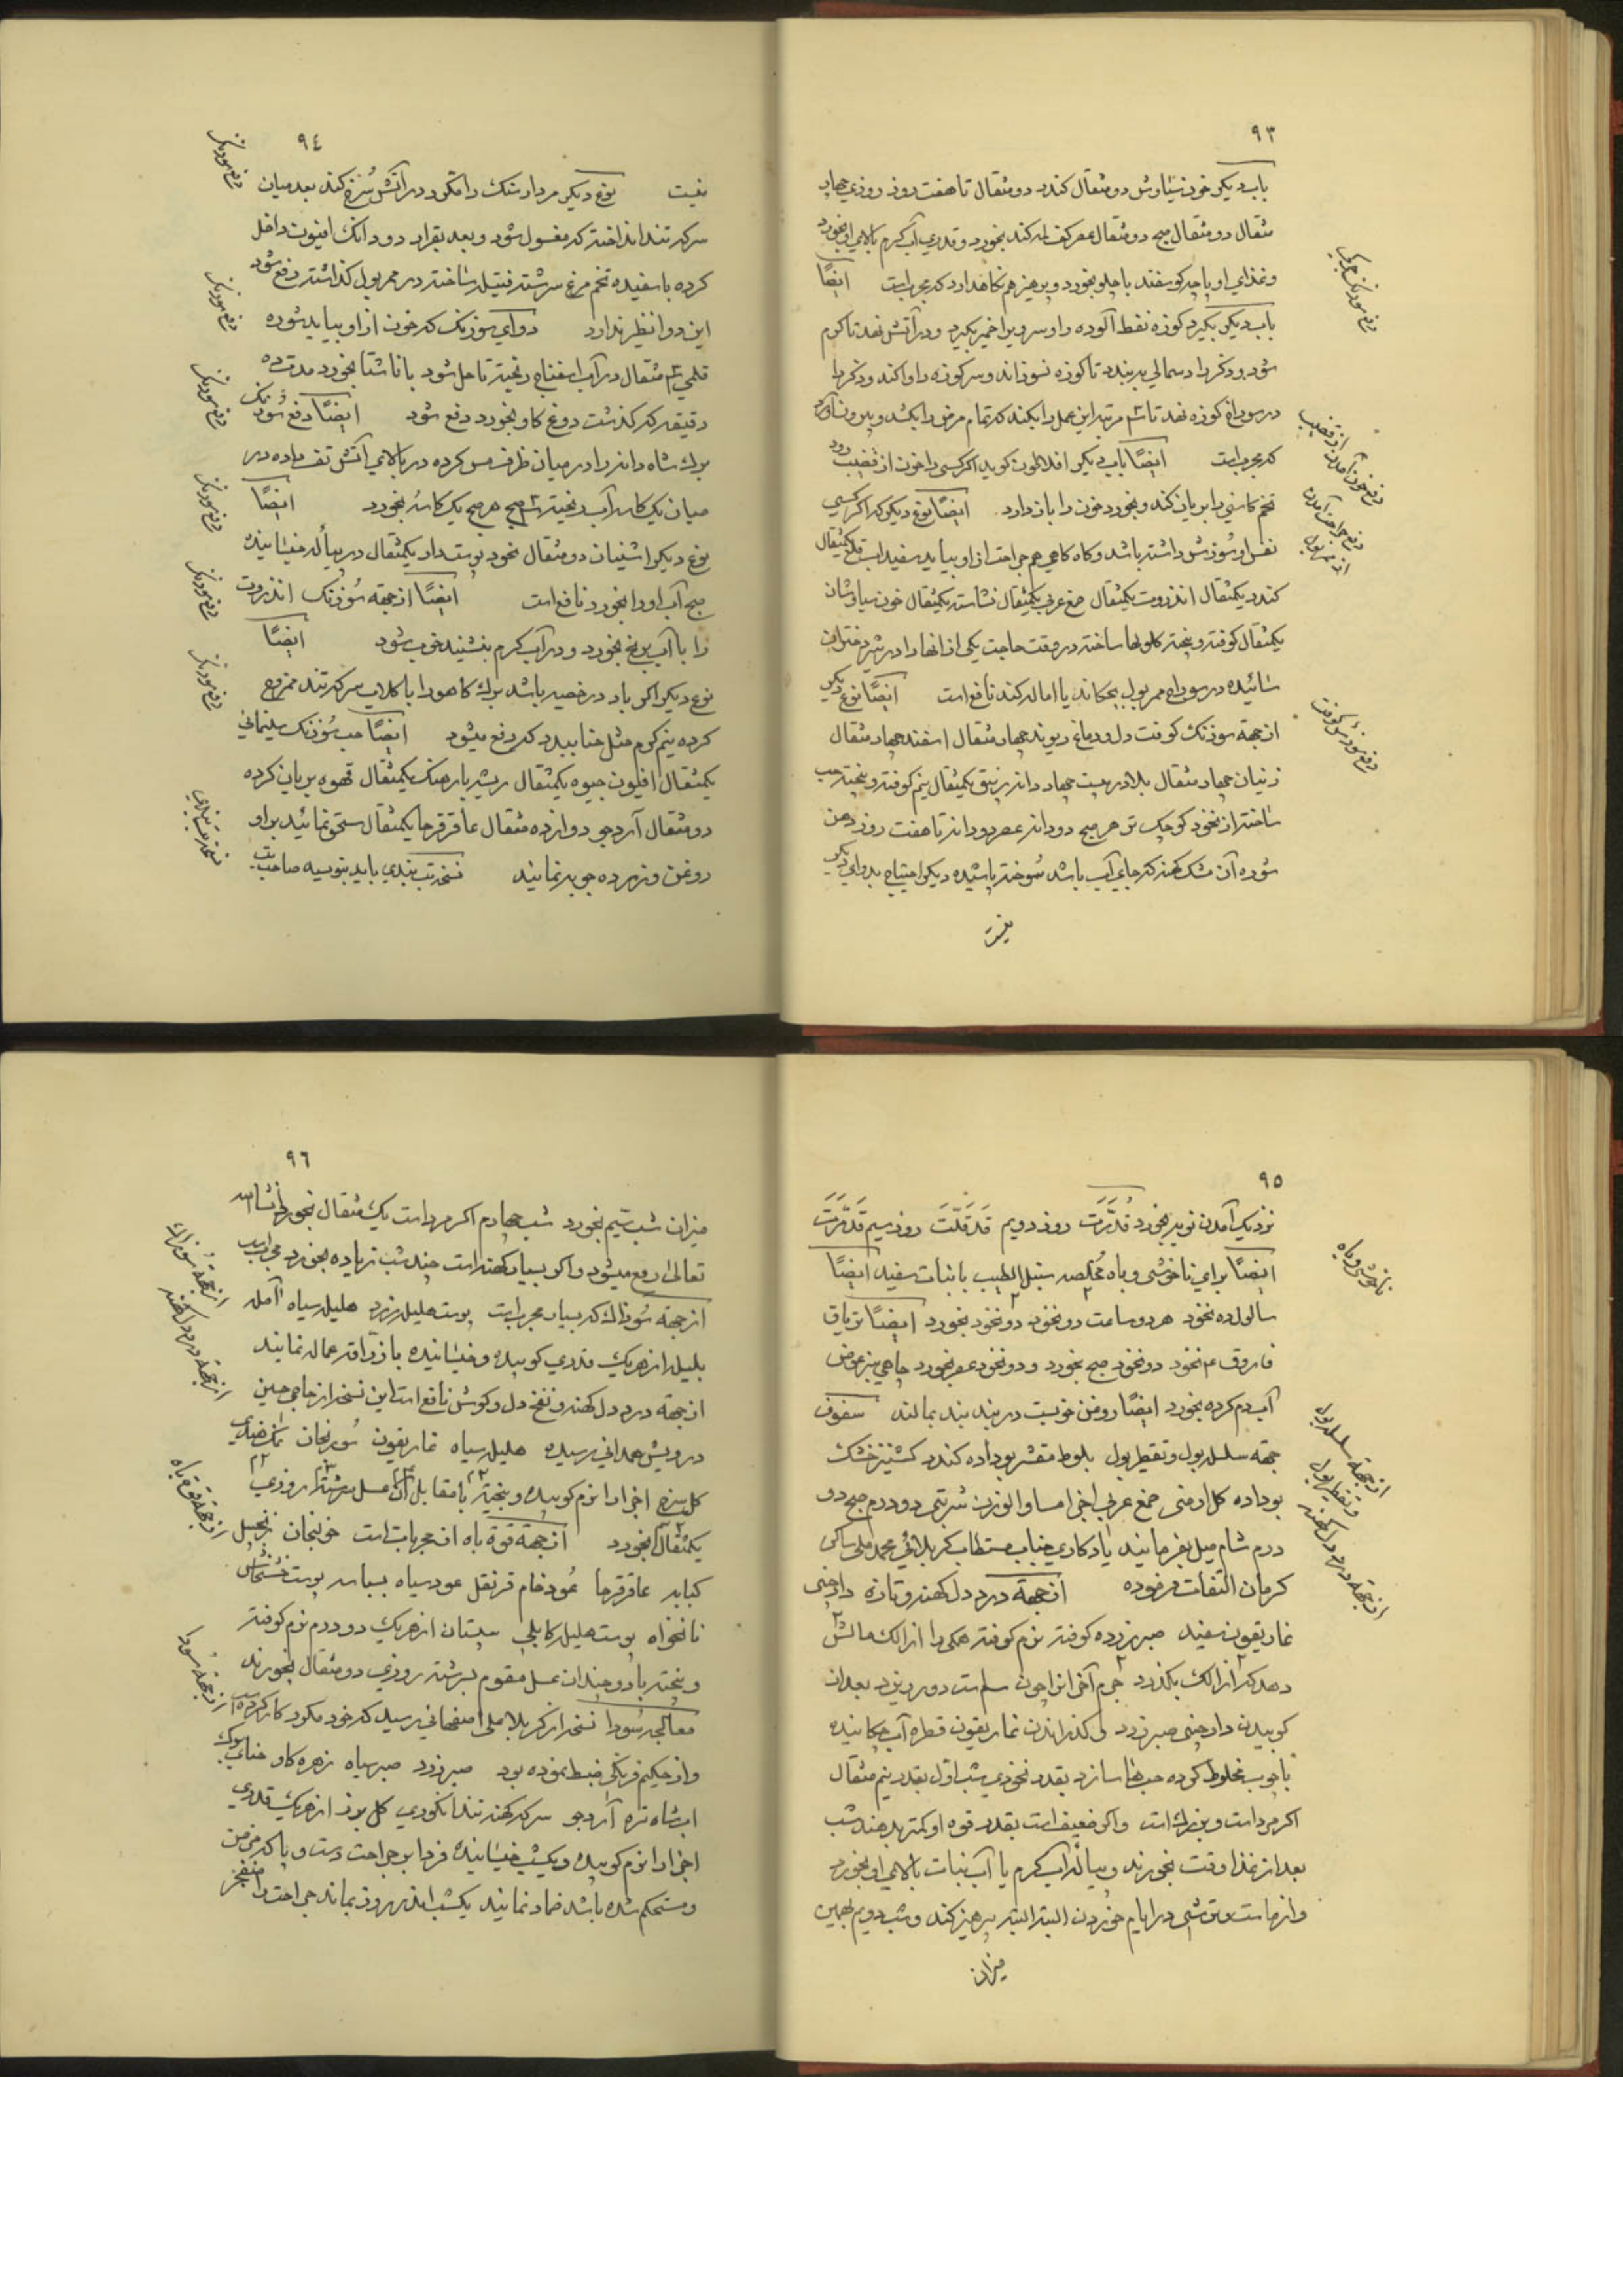 ٩٣
باب دیکر خون سیاوش دو مثقال کندر دو مثقال تا هفت روز روزی چهار
مثقال دو مثقال صبح دو مثقال عصر کف لمه کند بخورد و قدری آب کرم بالای او بخورد
و غذای او پاچه کوسفند با چلو بخورد و پرهیز هم نکاهدارد که مجربست ایضًا
باب دیکر بکیرد کوزه نفط آلوده را و سر ویرا خمیر بکیرد و در آتش نهد تا کرم
شود و ذکر را دسمالی به بندد تا کوزه نسوزاند و سر کوزه را وا کند و ذکر را
در سوراخ کوزه نهد تا ٣ مرتبه این عمل را بکند که تمام مرض را بکشد و بیرون آورد
که مجربست ایضًا باب دیکر افلاطون کوید اکر کسی را خون از قضیب رود
تخم کاسنی را بریان کند و بخورد خون را باز دارد. ایضًا نوع دیکر که اکر کسی
نفس او سوزش داشته باشد و کاه کاهی هم جراحت از او بیاید سفیداب قلع یکمثقال
کندر یکمثقال انذروت یکمثقال صمغ عربی یکمثقال نشاسته یکمثقال خون سیاوشان
یکمثقال کوفته و بیخته کلولها ساخته در وقت حاجت یکی از انها را در شیر دختران
سائیده در سوراخ ممر بول بچکاند یا اماله کند نافع است ایضًا نوع دیکر
از جهة سوزنک کوفت دل و دماغ ریوند چهار مثقال اسفند چهار مثقال
زنیان چهار مثقال بلادر بیست چهار دانه زیبق یکمثقال نیم کوفته و بیخته حب
ساخته از نخود کوچک تر هر صبح دو دانه عصر دو دانه تا هفت روز دهن
شوره آن مشک کهنه که جای آب باشد سوخته پاشیده دیکر احتیاج بدوای دیکر
نیست
دفع سوزنک چرکی
دفع خون آمدن از قضیب
دفع جراحت آمدن
از ممر بول
دفع سوزنک کوفت
٩٤
نیست نوع دیکر مردارسنک را مکرر در آتش سرخ کند بعد میان
سرکه تند انداخته که مغسول شود و بعد بقرار دو دانک افیون داخل
کرده با سفیده تخم مرغ سرشته فتیله ساخته در ممر بول کذاشته دفع شود
این دوا نظیر ندارد دوای سوزنک که خون از او بیاید شوره
قلمی ٣ مثقال در آب اسفناج ریخته تا حل شود با ناشتا بخورد مدت ده
دقیقه که کذشت دوغ کاو بخورد دفع شود ایضًا دفع سوزنک
برک شاه دانه را در میان ظرف مس کرده در بالای آتش تف داده در
میان یک کاسه آب ریخته ٣ صبح هر صبح یک کاسه بخورد ایضًا
نوع دیکر اشنیان دو مثقال نخود پوست دار یکمثقال در پیاله خیسانیده
صبح آب او را بخورد نافع است ایضًا از جهة سوزنک انذروت
را با آب برنج بخورد و در آب کرم بنشیند خوب شود ایضًا
نوع دیکر اکر باد در خصیه باشد برک کاهو را با کلاب سرکه تند ممزوج
کرده نیم کرم مثل حنا ببندد که رفع میشود ایضًا حب سوزنک سلیمانی
یکمثقال افیون جیوه یکمثقال ریشه بارهنک یکمثقال قهوه بریان کرده
دو مثقال آرد جو دوازده مثقال عاقرقرحا یکمثقال سحق نمائید بر او
روغن و زرده چوبه نمائید نسخه تب بندی باید بنویسه صاحب تب
دفع سوزنک
دفع سوزنک
دفع سوزنک
دفع سوزنک
دفع سوزنک
دفع سوزنک
نسخه تب بندی
٩٥
نزدیک آمدن نوبه بخورد قدرت روز دویم قدقلت روز سیم قدمرت
ایضًا برای ناخوشی و باه مخلصه سنبل الطیب با نبات سفید ایضًا
سالول ده نخود هر دو ساعت دو نخود دو نخود بخورد ایضًا تریاق
فاروق ۴ نخود دو نخود صبح بخورد و دو نخود عصر بخورد چاهی نیز عوض
آب دم کرده بخورد ایضًا روغن خوبست در بند بند بمالند سفوف
جهة سلسل بول و تقطیر بول بلوط مقشر بوداده کندر کشنیز خشک
بوداده کل ارمنی صمغ عربی اجزا مساو الوزن شربتی دو درم صبح دو
درم شام میل بفرمائید یادکاری جناب مستطاب کربلائی محمد علی ساکن
کرمان التفات فرموده از جهة درد دل کهنه و تازه دارچنی
غاریقون سفید صبر زرد کوفته نرم کوفته همکی را از الک مالش
دهد که از الک بکذرد جرم آخر انرا چون سم است دور ریزد بعد از
کوبیدن دارچنی صبر زرد کذراندن غاریقون قطره آب چکانیده
تا خوب مخلوط کرده حبها سازد بقدر نخودی شب اول بقدر نیم مثقال
اکر مرد است و بزرک است و اکر ضعیف است بقدر قوه او کمتر بدهند شب
بعد از غذا وقت بخورند و پیاله آب کرم یا آب نبات بالای او بخورد
و از ماست و ترشی در ایام خوردن البته البته پرهیز کند و شب دویم بهمین
میزان
ناخوشی و باه
از جهة سلسل بول
و تقطیر بول
از جهة درد دل کهنه
٩٦
میزان شب سیم بخورد شب چهارم اکر مرد است یک مثقال بخورد انشاالله
تعالی رفع میشود و اکر بسیار کهنه است چند شب زیاده بخورد مجربست
از جهة سوداک که بسیار مجربست پوست هلیله زرد هلیله سیاه آمله
بلیله از هر یک قدری کوبیده و خیسانیده با زراقه عماله نمایند
از جهة درد دل کهنه و نفخ دل و کوش نافع است این نسخه از حاجی حسن
درویش همدانی رسیده هلیله سیاه غاریقون سورنجان نمک هندی
کل سرخ اجزا را نرم کوبیده و بیخته با مقابل آن عسل بسرشته روزی
یکمثقال بخورد از جهة قوة باه از مجربات است خولنجان زنجبیل
کبابه عاقرقرحا عود خام قرنفل عود سیاه بسباسه پوست خشخاش
نانخواه پوست هلیله کابلی سپستان از هر یک دو درم نرم کوفته
و بیخته با دو چندان عسل مقوم بسرشته روزی دو مثقال بخورند
معالجه سودا نسخه از کربلا علی اصفهانی رسید که خود مکرر کار کرده است
و از حکیم فرنکی ضبط نموده بود صبر زرد صبر سیاه زهره کاو حنای سوک
اب شاه تره آرد جو سرکه کهنه تند انکوری کل از هر یک قدری
اجزا را نرم کوبیده و یکشب خیسانیده فردا بر جراحت دست و پا که مزمن
و مستحکم شده باشد ضماد نمایند یکشبانه روز بماند جراحت را منفجر
از جهة سوزاک
از جهة درد دل کهنه
از جهة قوة باه
از جهة سودا